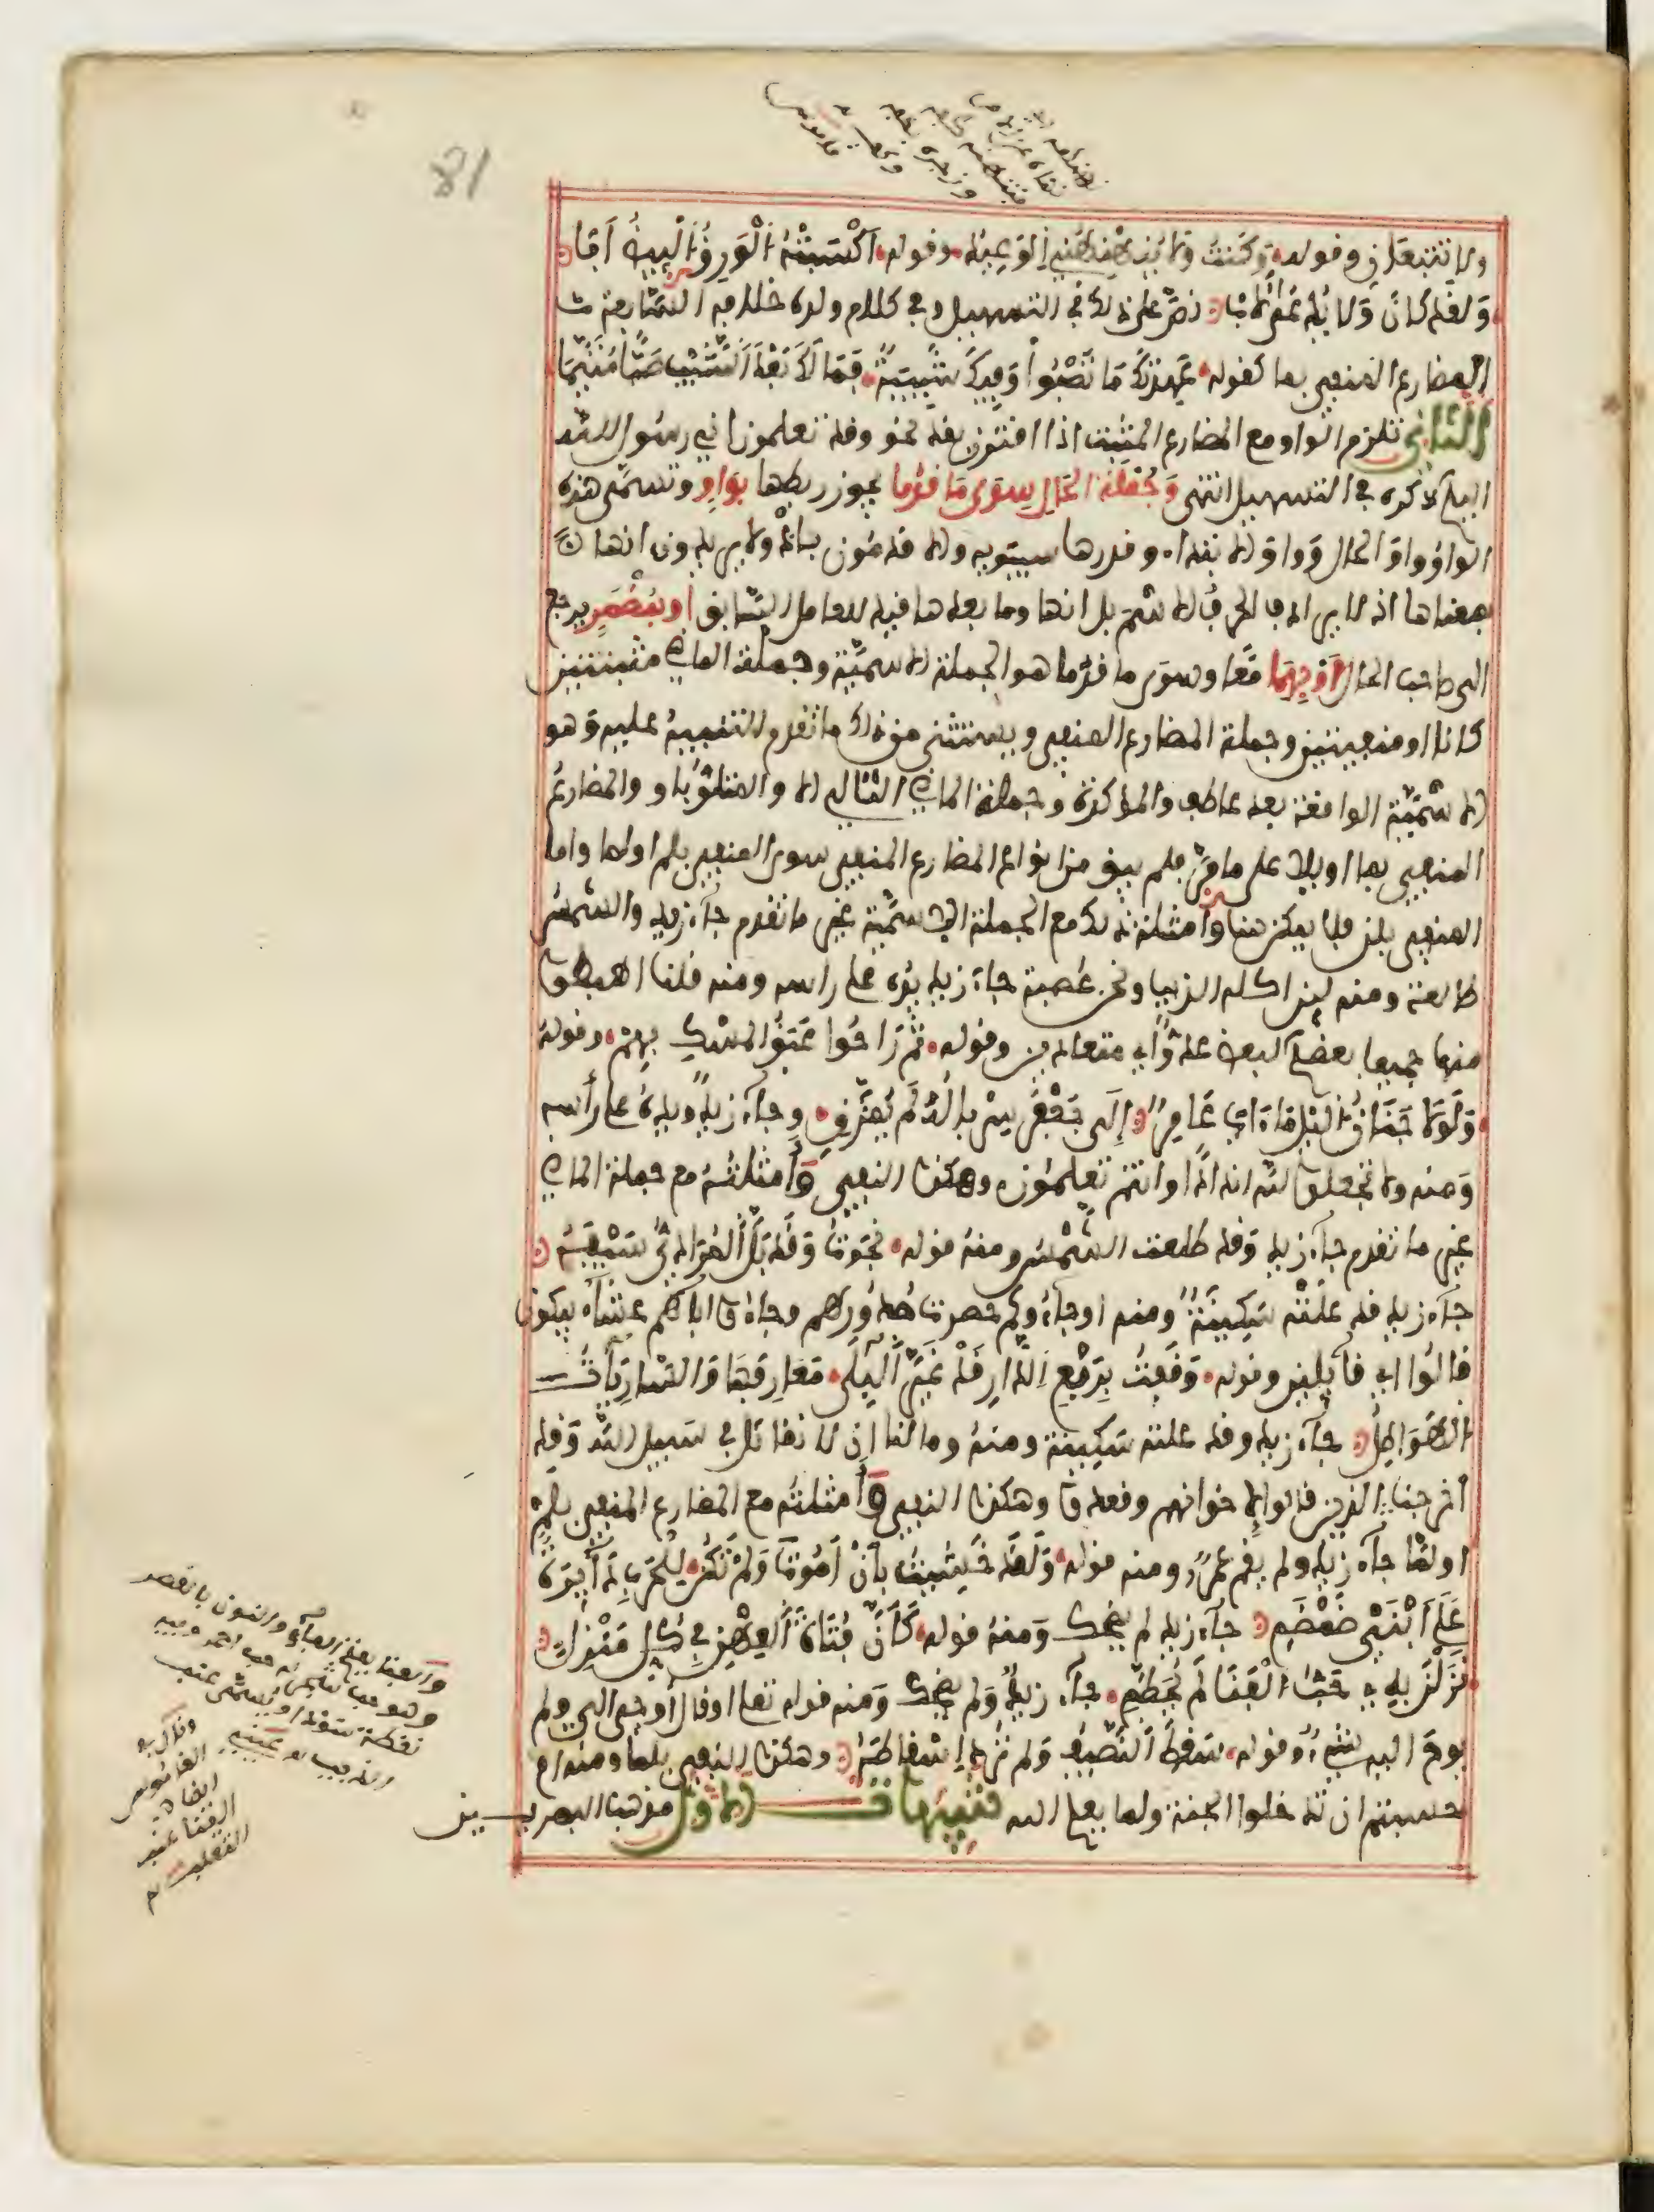 ولا تتبعان وقوله وكنت ولا ينهنهني الوعيد وقوله اكسبته الورق البيض ابا
ولقد كان ولا يدعى لاب نص على ذلك في التسهيل وفي كلام ولده خلافه السابعة
المضارع المنفي بما كقوله عهدتك ما تصبوا وفيك شبيبة فما لك بعد الشيب صبا متيما
الثاني تلزم الواو مع المضارع المثبت اذا اقترن بقد نحو وقد تعلمون اني رسول الله
اليكم ذكره في التسهيل انتهى وجملة الحال سوى ما قدما يجوز ربطها بواو وتسمى هذه
الواو واو الحال وواو الابتداء وقدرها سيبويه والاقدمون باذ ولا يريدون انها
بمعناها اذ لا يرادف الحرف الاسم بل انها وما بعدها قيد للعامل السابق او بمضمر يرجع
الى صاحب الحال او بهما معا وسوى ما قدما هو الجملة الاسمية وجملة الماضي مثبتتين
كانا او منفيتين وجملة المضارع المنفي ويستثنى من ذلك ما تقدم التنبيه عليه وهو
الاسمية الواقعة بعد عاطف والمؤكدة وجملة الماضي التالي الا والمتلو باو والمضارع
المنفي بما او بلا على ما مر فلم يبق من انواع المضارع المنفي سوى المنفي بلم او لما واما
المنفي بلن فلا يمكن هنا وامثلة ذلك مع الجملة الاسمية غير ما تقدم جاء زيد والشمس
طالعة ومنه لين اكله الذيب ونحن عصبة جاء زيد يده على راسه ومنه قلنا اهبطوا
منها جميعا بعضكم لبعض عدو اي متعادين وقوله ثم راحوا عبق المسك بهم وقوله
ولولا جنان الليل ما ءاب عامر الى جعفر سرباله لم يمزق وجاء زيد ويده على رأسه
ومنه ولا تجعلوا لله اندادا وانتم تعلمون وهكذا النفي وأمثلته مع جملة الماضي
غير ما تقدم جاء زيد وقد طلعت الشمس ومنه قوله نجوت وقد بل المرادي سيفه
جاء زيد قد علته سكينة ومنه اوجاؤوكم حصرت صدورهم وجاؤا اباهم عشاء يبكون
قالوا اي قائلين وقوله وقفت بربع الدار قد غير البلى معارفها والساريات
الهواطل جاء زيد وقد علته سكينة ومنه وما لنا ان لا نقاتل في سبيل الله وقد
أخرجنا الذين قالوا لاخوانهم وقعدوا وهكذا النفي وأمثلته مع المضارع المنفي بلم
او لما جاء زيد ولم يقم عمرو ومنه قوله ولقد خشيت بان أموت ولم تكن للحرب دائرة
على ابني ضمضم جاء زيد لم يضحك ومنه قوله كأن فتات العهن في كل منزل
نزلن به حب الفنا لم يحطم جاء زيد ولم يضحك ومنه قوله تعا او قال أوحي الي ولم
يوح اليه شيء وقوله سقط النصيف ولم ترد إسقاطه وهكذا النفي بلما ومنه ام
حسبتم ان تدخلوا الجنة ولما يعلم الله تنبيهات الاول مذهب البصريين
والفنا بفتح الفاء والنون بالقصر